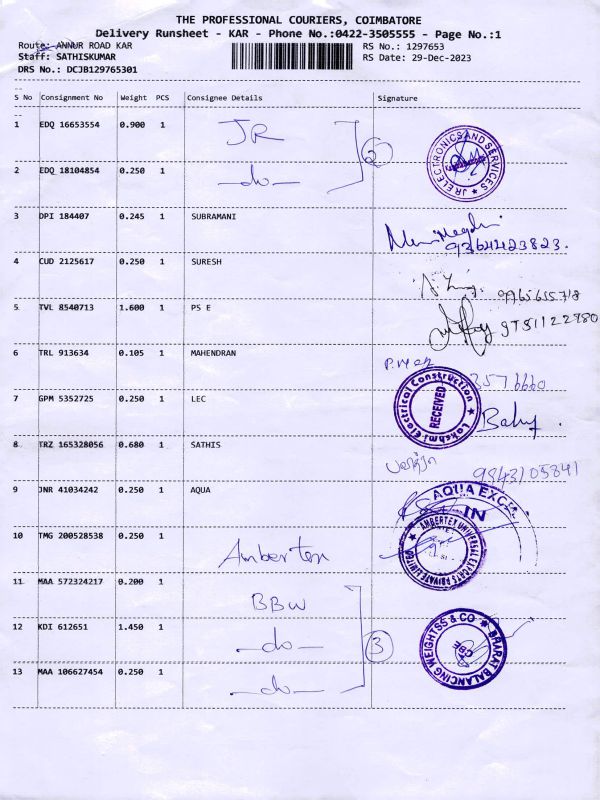 THE PROFESSIONAL COURIERS, COIMBATORE
Delivery Runsheet - KAR - Phone No.:0422-3505555 - Page No.:1
Route: ANNUR ROAD KAR RS No.: 1297653
Staff: SATHISKUMAR RS Date: 29-Dec-2023
DRS No.: DCJB129765301
S No Consignment No Weight PCS Consignee Details Signature
1 EDQ 16653554 0.900 1 JR
2
JR ELECTRONICS AND SERVICES
2 EDQ 18104854 0.250 1 —do—
3 DPI 184407 0.245 1 SUBRAMANI
9364423823.
4 CUD 2125617 0.250 1 SURESH
9965655718
5 TVL 8540713 1.600 1 PS E
9751122980
6 TRL 913634 0.105 1 MAHENDRAN
3576660
7 GPM 5352725 0.250 1 LEC
Lakshmi Electrical Construction
RECEIVED
8 TRZ 165328056 0.680 1 SATHIS
9843105841
9 JNR 41034242 0.250 1 AQUA
AQUA EXCEL
IN
10 TMG 200528538 0.250 1 Amberten
AMBERTEX UNIVERSAL EXPORTS PRIVATE LIMITED
11 MAA 572324217 0.200 1 BBW
12 KDI 612651 1.450 1 —do— 3
BHARAT BALANCING WEIGHTSS & CO
CBE
13 MAA 106627454 0.250 1 —do—